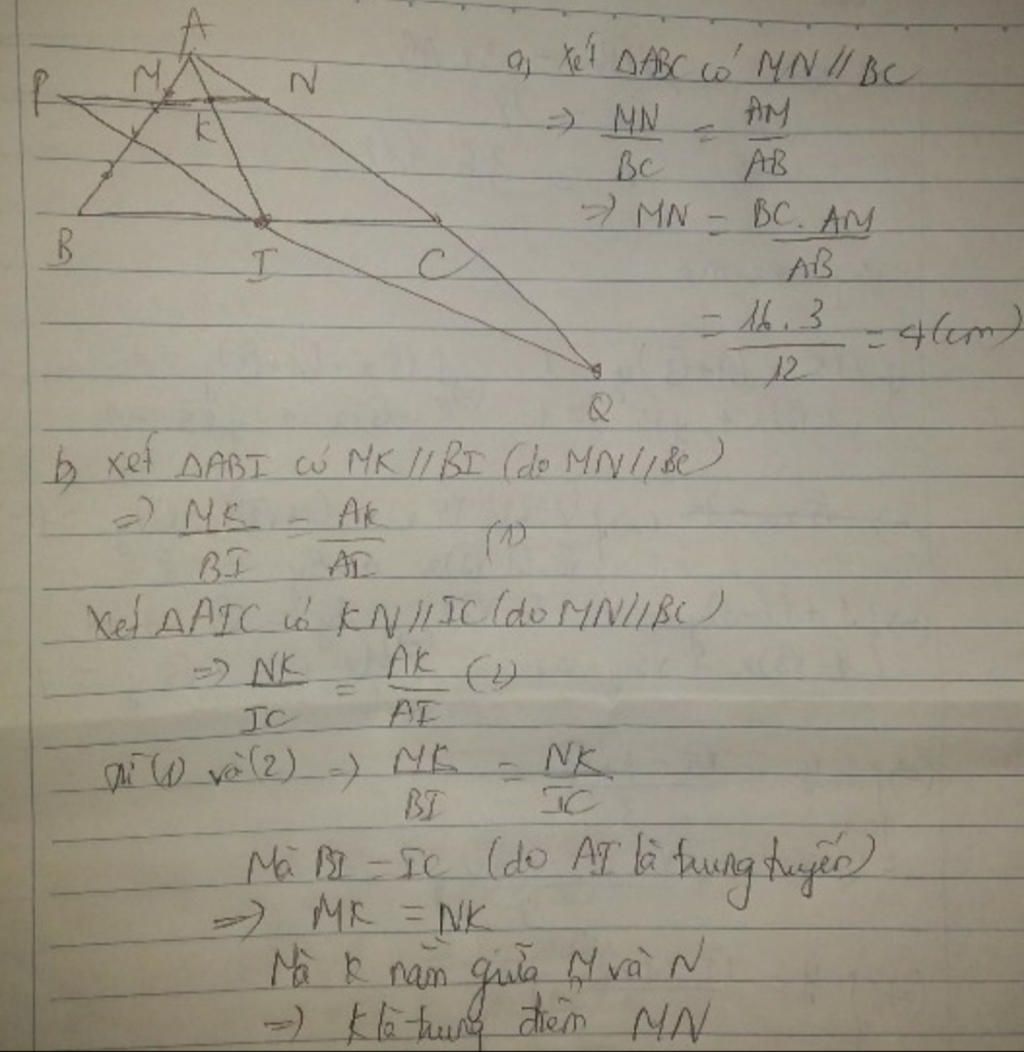 A
P M N
K
B I C
Q
a, xét ΔABC có MN // BC
=> MN/BC = AM/AB
=> MN = BC. AM/AB
= 16. 3/12 = 4 (cm)
b, xét ΔABI có MK // BI (do MN // BC)
=> MK/BI = AK/AI (1)
Xét ΔAIC có KN // IC (do MN // BC)
=> NK/IC = AK/AI (2)
Từ (1) và (2) => MK/BI = NK/IC
Mà BI = IC (do AI là trung tuyến)
=> MK = NK
Mà K nằm giữa M và N
=> K là trung điểm MN